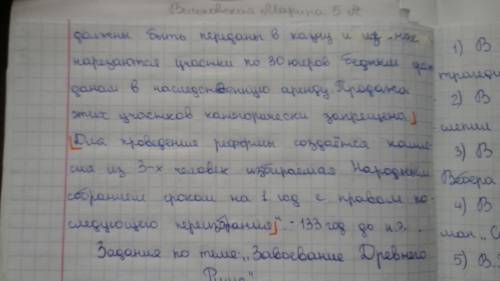 Марина 5 А
должны быть переданы в казну и из них
нарезаются участки по 30 югеров бедным
данам в наследственную аренду. Продажа
этих участков категорически запрещена
Для проведения реформы создаётся комис
сия из 3-х человек избираемая Народным
собранием сроком на 1 год с правом по-
следующего переизбрания". - 133 год до н.э.
Задание по теме: „Завоевание Древнего
Рима"
1) В
2) В
3) В
Вебера
4) В
5) В.